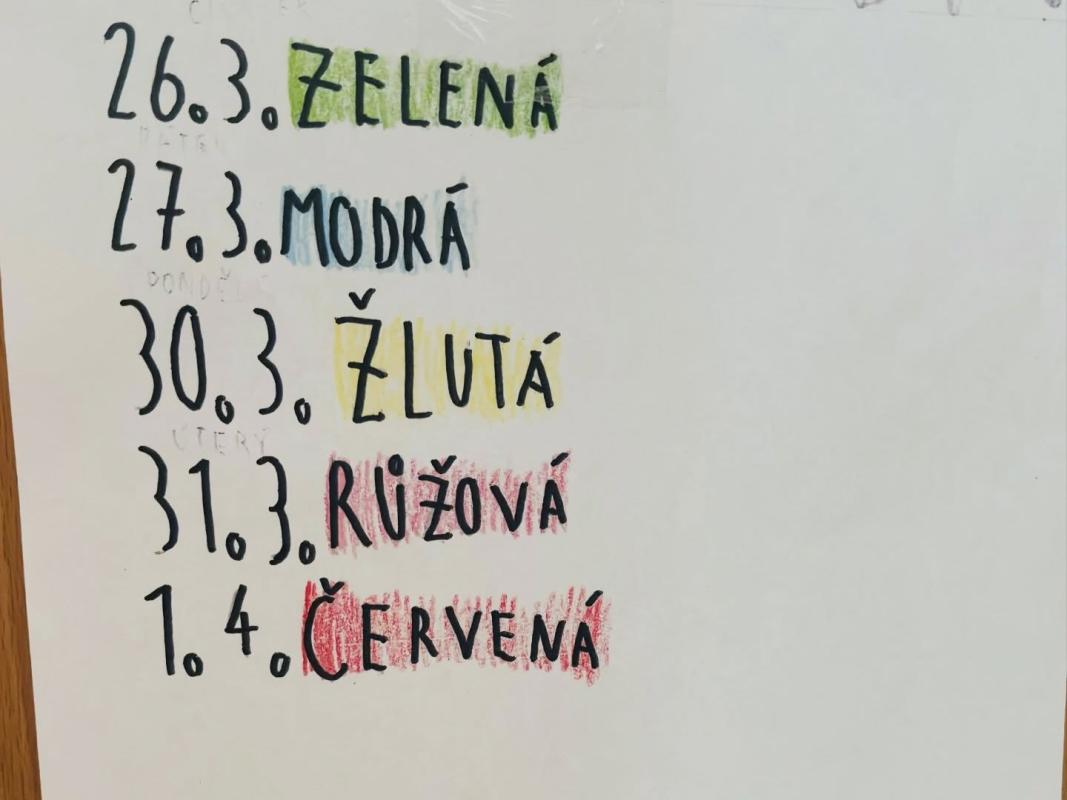 26.3. ZELENÁ
PÁTEK
27.3. MODRÁ
PONDĚLÍ
30.3. ŽLUTÁ
ÚTERÝ
31.3. RŮŽOVÁ
1.4. ČERVENÁ